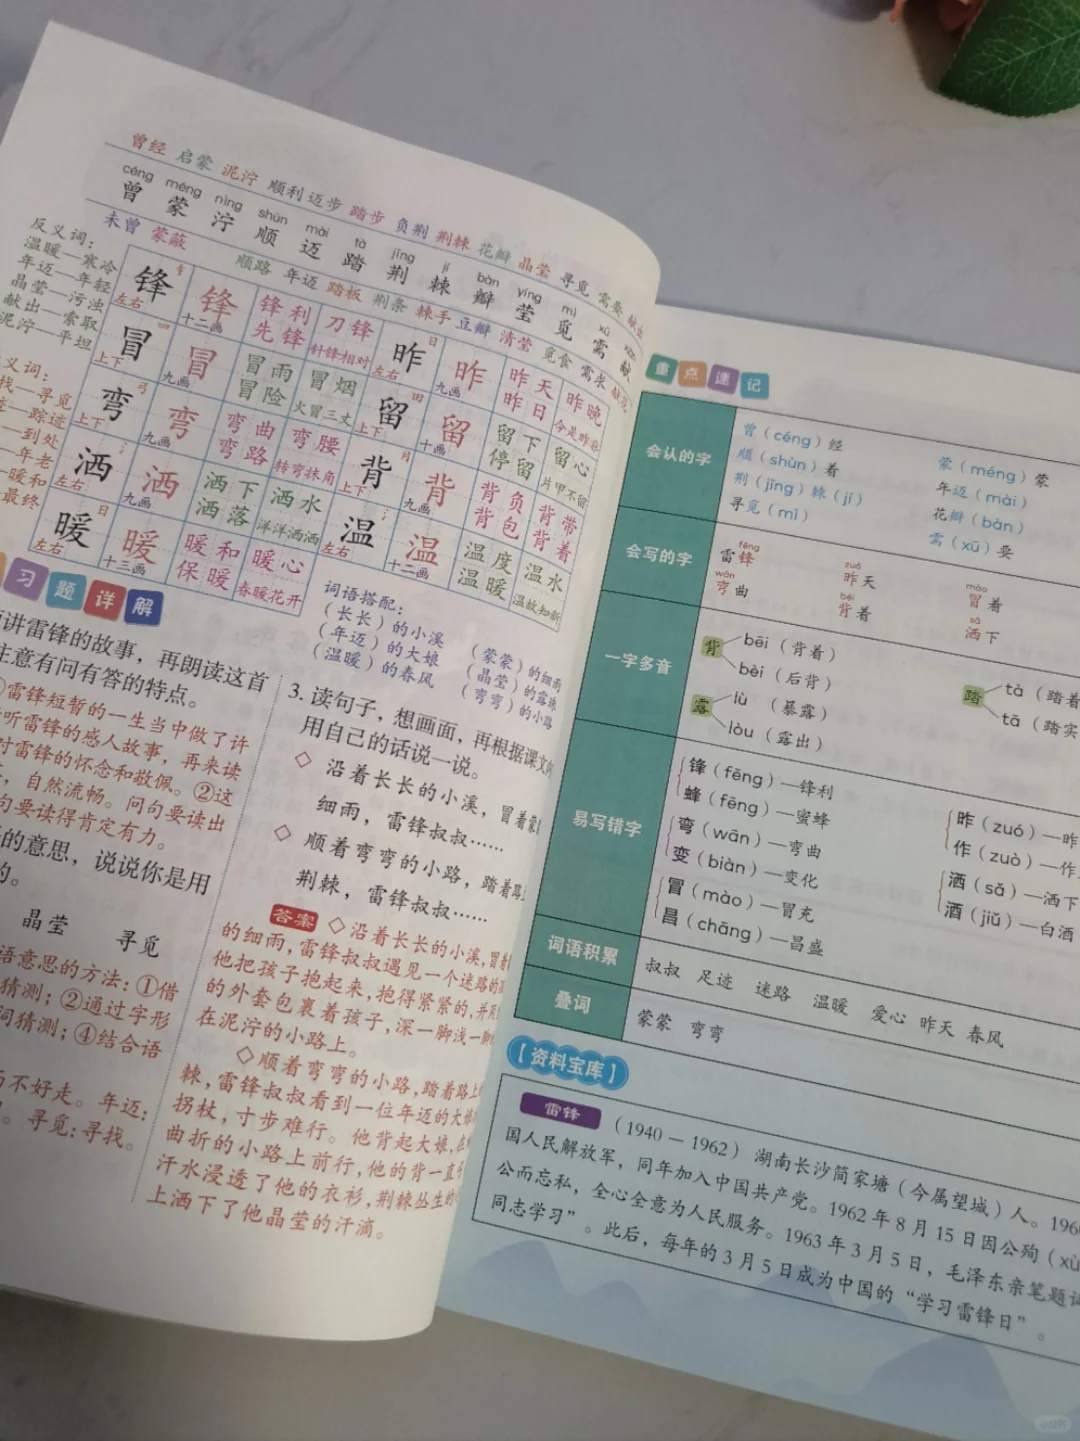 曾经 启蒙 泥泞 顺利 迈步 踏步 负荆 荆棘 花瓣 晶莹 寻觅 需要
céng méng nìng shùn mài tà jīng jí bàn yíng mì xū
曾 蒙 泞 顺 迈 踏 荆 棘 瓣 莹 觅 需 献
未曾 蒙蔽 顺路 年迈 踏板 荆条 棘手 豆瓣 清莹 觅食 需求
反义词：
温暖—寒冷
年迈—年轻
晶莹—污浊
献出—索取
泥泞—平坦
义词：
找—寻觅
迹—踪迹
—到处
—年老
—暖和
最终
锋 左右 锋 十二画 锋利 先锋 刀锋 针锋相对
昨 日 左右 昨 九画 昨天 昨日 昨晚 今是昨非
冒 上下 冒 九画 冒雨 冒险 冒烟 火冒三丈
留 田 上下 留 十画 留下 停留 留心 片甲不留
弯 弓 上下 弯 九画 弯曲 弯路 弯腰 转弯抹角
背 上下 背 九画 背负 背包 背带 背着
洒 左右 洒 九画 洒下 洒落 洒水 洋洋洒洒
温 左右 温 十二画 温度 温暖 温水 温故知新
暖 日 左右 暖 十三画 暖和 保暖 暖心 春暖花开
习题详解
讲雷锋的故事，再朗读这首
注意有问有答的特点。
①雷锋短暂的一生当中做了许
听雷锋的感人故事，再来读
对雷锋的怀念和敬佩。②这
，自然流畅。问句要读出
句要读得肯定有力。
的意思，说说你是用
的。
晶莹 寻觅
语意思的方法：①借
猜测；②通过字形
词猜测；④结合语
而不好走。年迈：
。寻觅：寻找。
词语搭配：
（长长）的小溪
（年迈）的大娘
（温暖）的春风
（蒙蒙）的细雨
（晶莹）的露珠
（弯弯）的小路
3. 读句子，想画面，再根据课文内
用自己的话说一说。
◇ 沿着长长的小溪，冒着蒙
细雨，雷锋叔叔……
◇ 顺着弯弯的小路，踏着路
荆棘，雷锋叔叔……
答案 ◇沿着长长的小溪，冒着
的细雨，雷锋叔叔遇见一个迷路的
他把孩子抱起来，抱得紧紧的，并用
的外套包裹着孩子，深一脚浅一脚
在泥泞的小路上。
◇顺着弯弯的小路，踏着路上
棘，雷锋叔叔看到一位年迈的大娘
拐杖，寸步难行。他背起大娘，在
曲折的小路上前行，他的背一直
汗水浸透了他的衣衫，荆棘丛生的
上洒下了他晶莹的汗滴。
重点速记
会认的字
曾（céng）经 蒙（méng）蒙
顺（shùn）着 年迈（mài）
荆（jīng）棘（jí） 花瓣（bàn）
寻觅（mì） 需（xū）要
会写的字
fēng zuó mào
雷锋 昨天 冒着
wān bēi sǎ
弯曲 背着 洒下
一字多音
背 bēi（背着） bèi（后背）
踏 tà（踏着 tā（踏实
露 lù（暴露） lòu（露出）
易写错字
锋（fēng）—锋利
蜂（fēng）—蜜蜂
昨（zuó）—昨
作（zuò）—作
弯（wān）—弯曲
变（biàn）—变化
洒（sǎ）—洒下
酒（jiǔ）—白酒
冒（mào）—冒充
昌（chāng）—昌盛
词语积累
叔叔 足迹 迷路 温暖 爱心 昨天 春风
叠词
蒙蒙 弯弯
【资料宝库】
雷锋 （1940—1962）湖南长沙简家塘（今属望城）人。1960
国人民解放军，同年加入中国共产党。1962年8月15日因公殉（xù
公而忘私，全心全意为人民服务。1963年3月5日，毛泽东亲笔题词
同志学习”。此后，每年的3月5日成为中国的“学习雷锋日”。